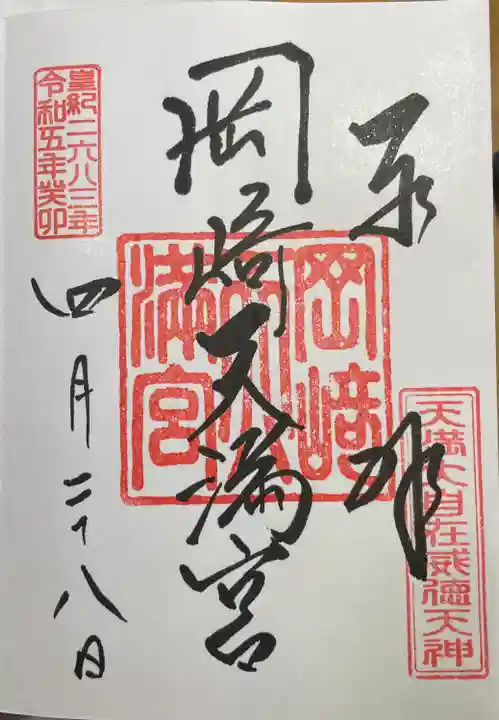 奉拝
天満大自在威徳天神
岡崎天満宮
岡崎
天満宮
皇紀二六八三年
令和五年癸卯
四月二十八日